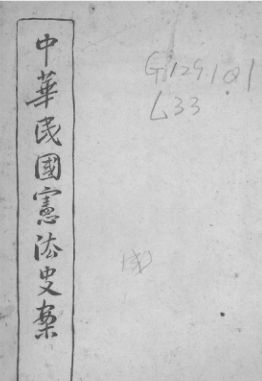 中華民國憲法史案
G129.101
L33